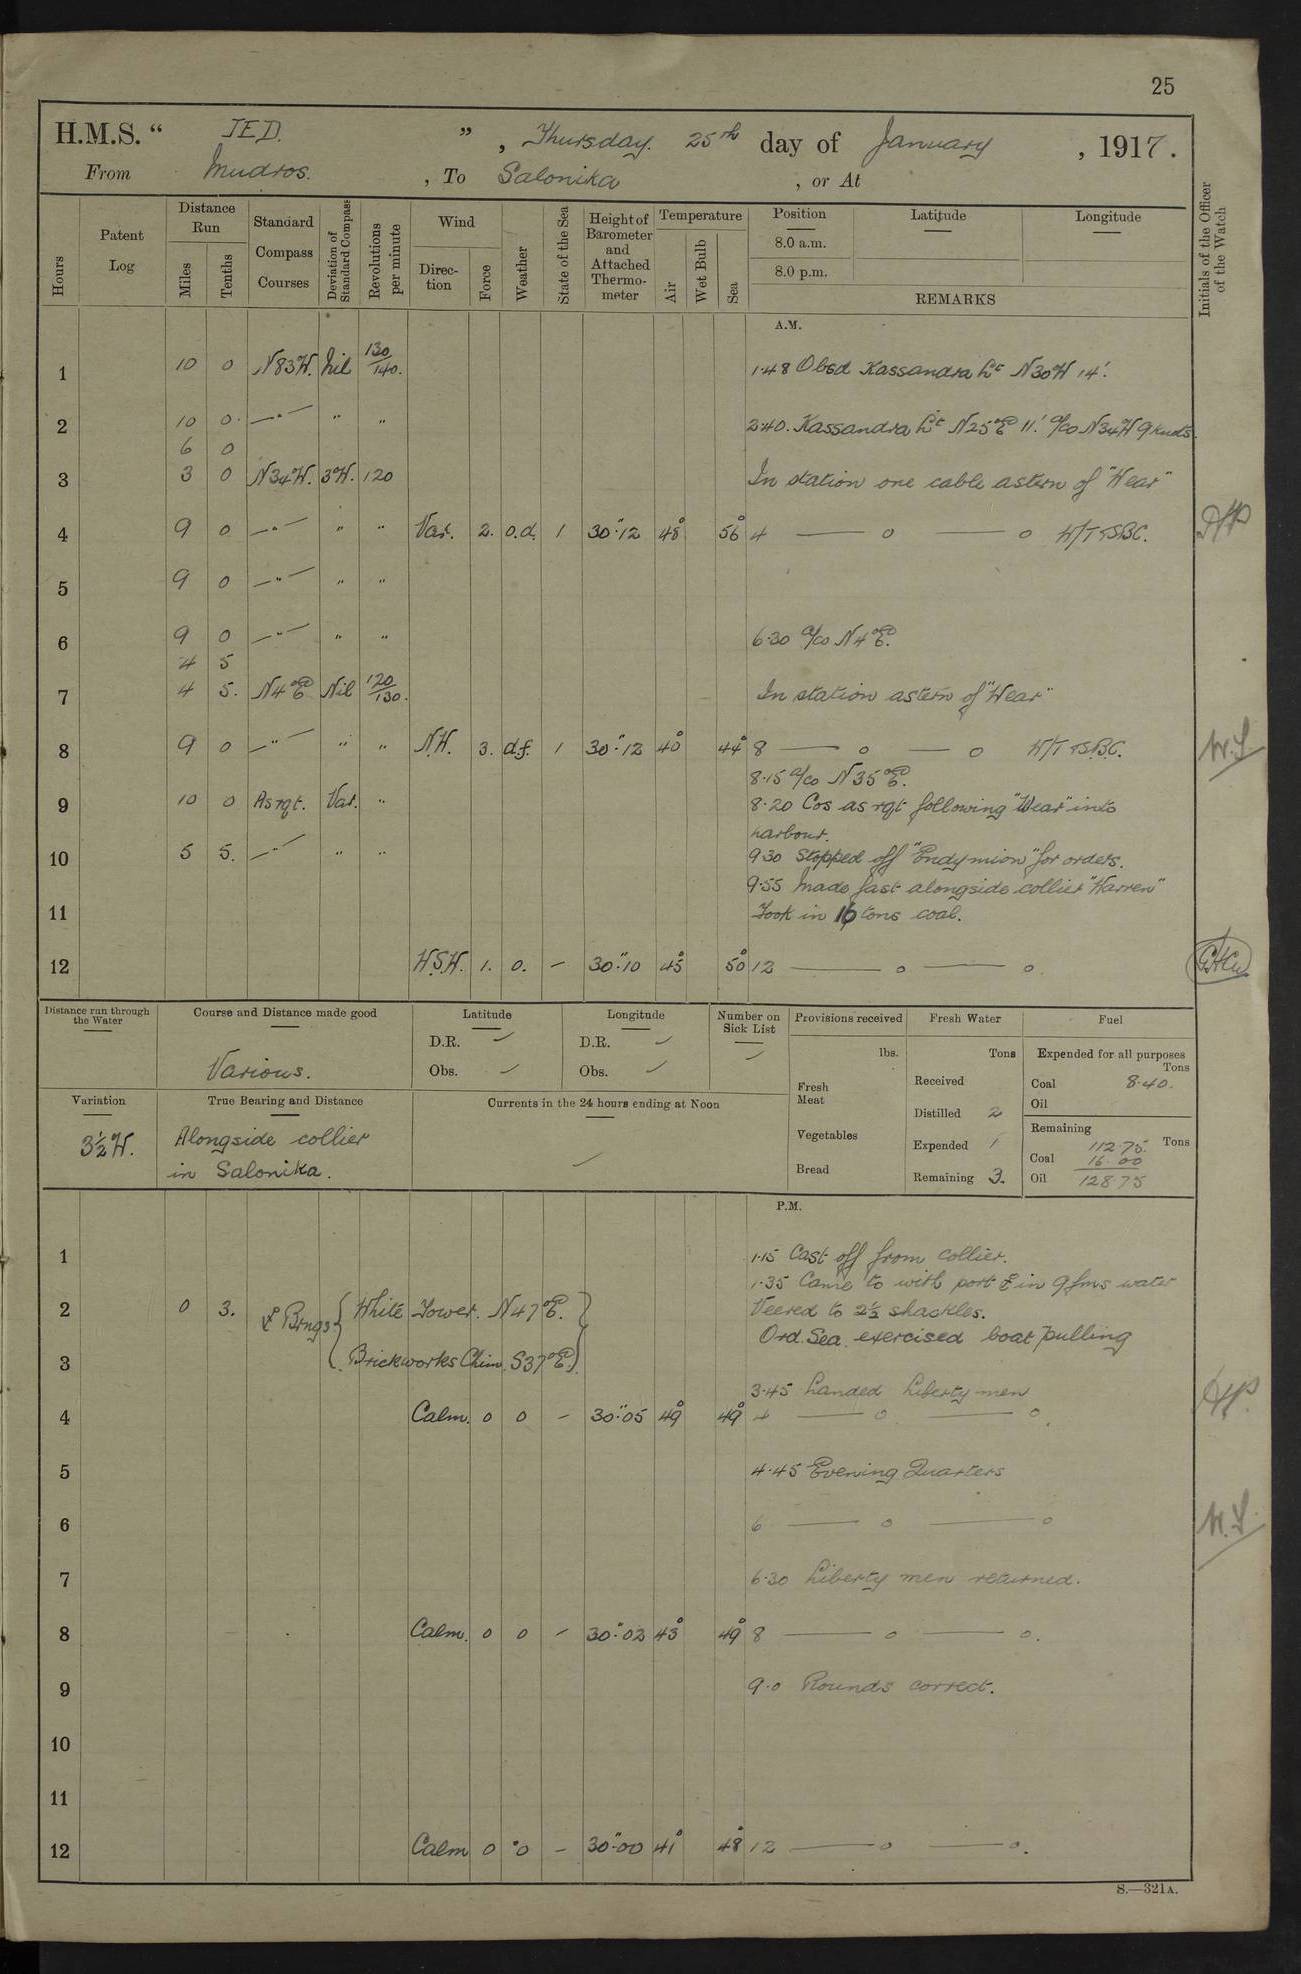 25
H.M.S. " JED. ", Thursday. 25th day of January, 1917.
From Mudros. , To Salonika , or At
Hours
Patent Log
Distance Run
Miles
Tenths
Standard Compass Courses
Deviation of Standard Compass
Revolutions per minute
Wind
Direction
Force
Weather
State of the Sea
Height of Barometer and Attached Thermometer
Temperature
Air
Wet Bulb
Sea
Position
8.0 a.m.
8.0 p.m.
Latitude
Longitude
REMARKS
Initials of the Officer of the Watch
A.M.
1 10 0 N83W. Nil 130/140. 1.48 Obsd Kassandra Lt N30W 14'.
2 10 0. —"— " " 2.40. Kassandra Lt N25E 11'. a/co N34W 9 knots.
6 0
3 3 0 N34W. 3W. 120 In station one cable astern of "Wear"
4 9 0 —"— " " Var. 2. o.d. 1 30".12 48° 56° 4 — o — o W/T TSBC.
5 9 0 —"— " "
6 9 0 —"— " " 6.30 a/co N4E.
4 5
7 4 5. N4E Nil 120/130. In station astern of "Wear"
8 9 0 —"— " " N.W. 3. d.f. 1 30".12 40° 44° 8 — o — o W/T TSBC. W.S.
8.15 a/co N35E.
9 10 0 As rqt. Var. " 8.20 Cos as rqt following "Wear" into
harbour.
10 5 5. —"— " " 9.30 Stopped off "Endymion" for orders.
9.55 Made fast alongside collier "Warren"
11 Took in 16 tons coal.
12 W.S.W. 1. o. – 30".10 45° 50° 12 — o — o
Distance run through the Water
Course and Distance made good
Various.
Latitude
D.R. –
Obs. –
Longitude
D.R. –
Obs. –
Number on Sick List
–
Provisions received
lbs.
Fresh Meat
Vegetables
Bread
Fresh Water
Tons
Received
Distilled 2
Expended 1
Remaining 3.
Fuel
Expended for all purposes
Tons
Coal 8.40.
Oil
Remaining
112.75 Tons
Coal 16.00
Oil 128.75
Variation
3½W.
True Bearing and Distance
Alongside collier
in Salonika.
Currents in the 24 hours ending at Noon
–
P.M.
1 1.15 Cast off from collier.
1.35 Came to with port ⚓ in 9 fms water
2 0 3. ⚓ Brngs { White Tower. N47E. } Veered to 2½ shackles.
Ord. Sea. exercised boat pulling
3 Brickworks Chim. S37E.
3.45 Landed Liberty men
4 Calm. 0 0 – 30".05 49° 49° 4 — o — o.
5 4.45 Evening Quarters
6 6 — o — o W.S.
7 6.30 Liberty men returned.
8 Calm. 0 0 – 30".02 43° 49° 8 — o — o.
9 9.0 Rounds correct.
10
11
12 Calm 0 0 – 30".00 41° 48° 12 — o — o.
S.—321A.